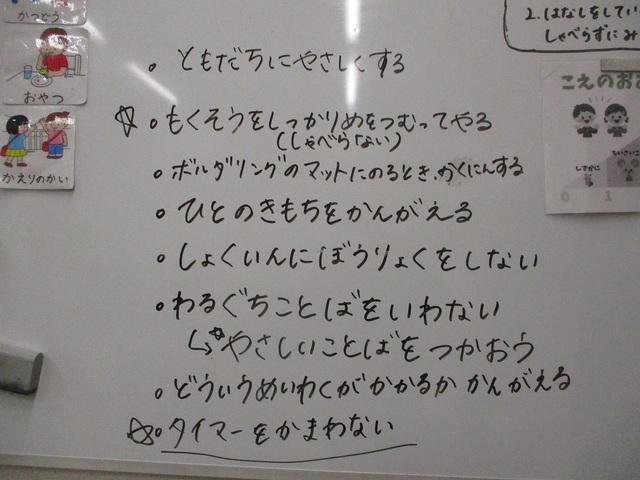 かつどう
おやつ
かえりのかい
2.はなしをしてい
しゃべらずにみ
こえのおお
ちいさいこ
しずかに
0 1
。ともだちにやさしくする
☆。もくそうをしっかりめをつむってやる
(しゃべらない)
。ボルダリングのマットにのるとき、かくにんする
。ひとのきもちをかんがえる
。しょくいんにぼうりょくをしない
。わるぐちことばをいわない
↳☆やさしいことばをつかおう
。どういうめいわくがかかるか かんがえる
☆。タイマーをかまわない